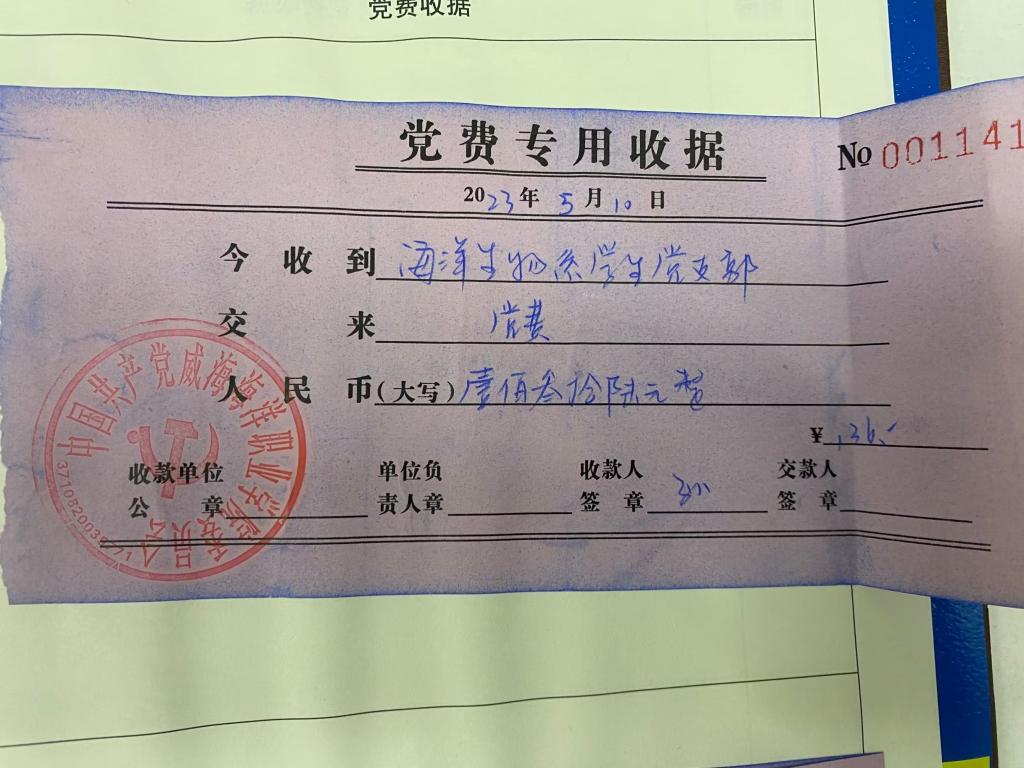 党费收据
党费专用收据
No 001141
2023年 5月10日
今收到 海洋生物系学生党支部
交来 党费
人民币(大写) 壹佰叁拾陆元整
¥ 136.-
收款单位公章 单位负责人章 收款人签章 交款人签章
中国共产党威海海洋职业学院委员会